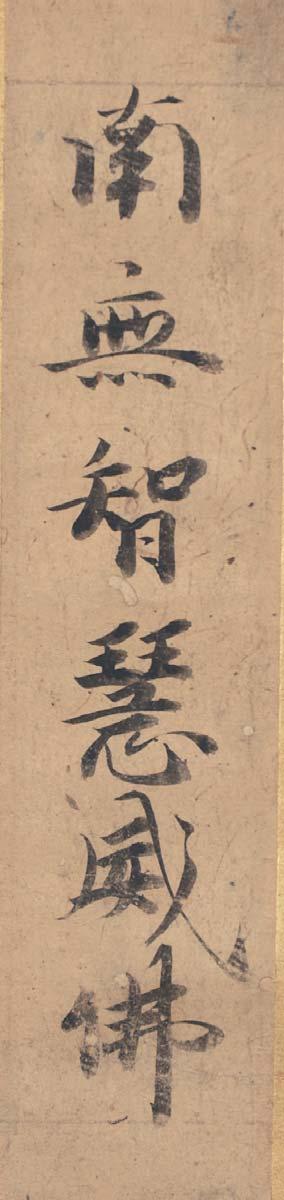 南無智慧威佛